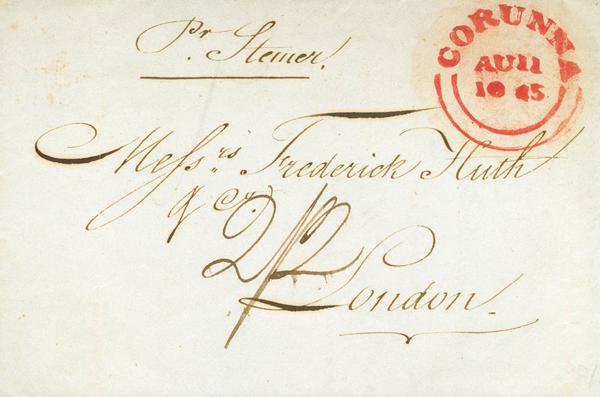 Pr. Stemer.
CORUNNA
AU11
1845
Messrs. Frederick Huth
& Co.
2/2
London.